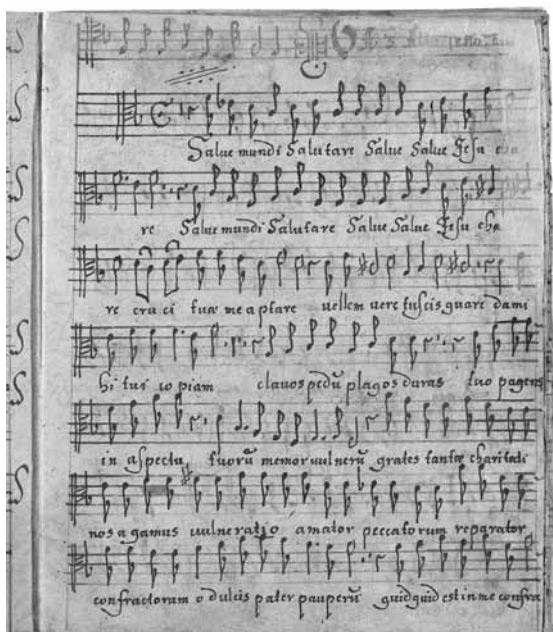 Salue mundi Salutare Salue Salue Jesu cha
re Salue mundi Salutare Salue Salue Jesu cha
re cru ci tuæ me aptare vellem vere tu scis quare da mi
hi tui co piam clauos pedũ plagos duras tuo pagens
in aspectu tuorũ memor vulnerũ grates tantæ charitati
nos agamus vulneratio amator peccatorum reparator
confractorum o dulcis pater pauperũ quidquid est in me confra